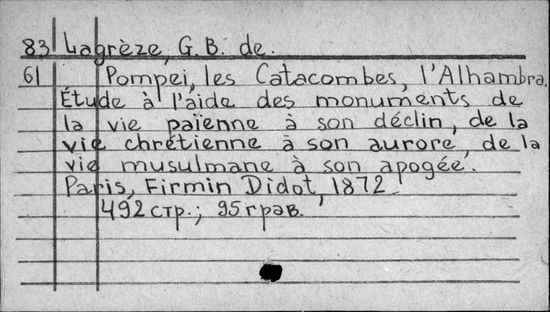 83 Lagrèze, G. B. de.
61 Pompei, les Catacombes, l'Alhambra.
Étude à l'aide des monuments de
la vie païenne à son déclin, de la
vie chrétienne à son aurore, de la
vie musulmane à son apogée.
Paris, Firmin Didot, 1872.
492 стр.; 95 грав.